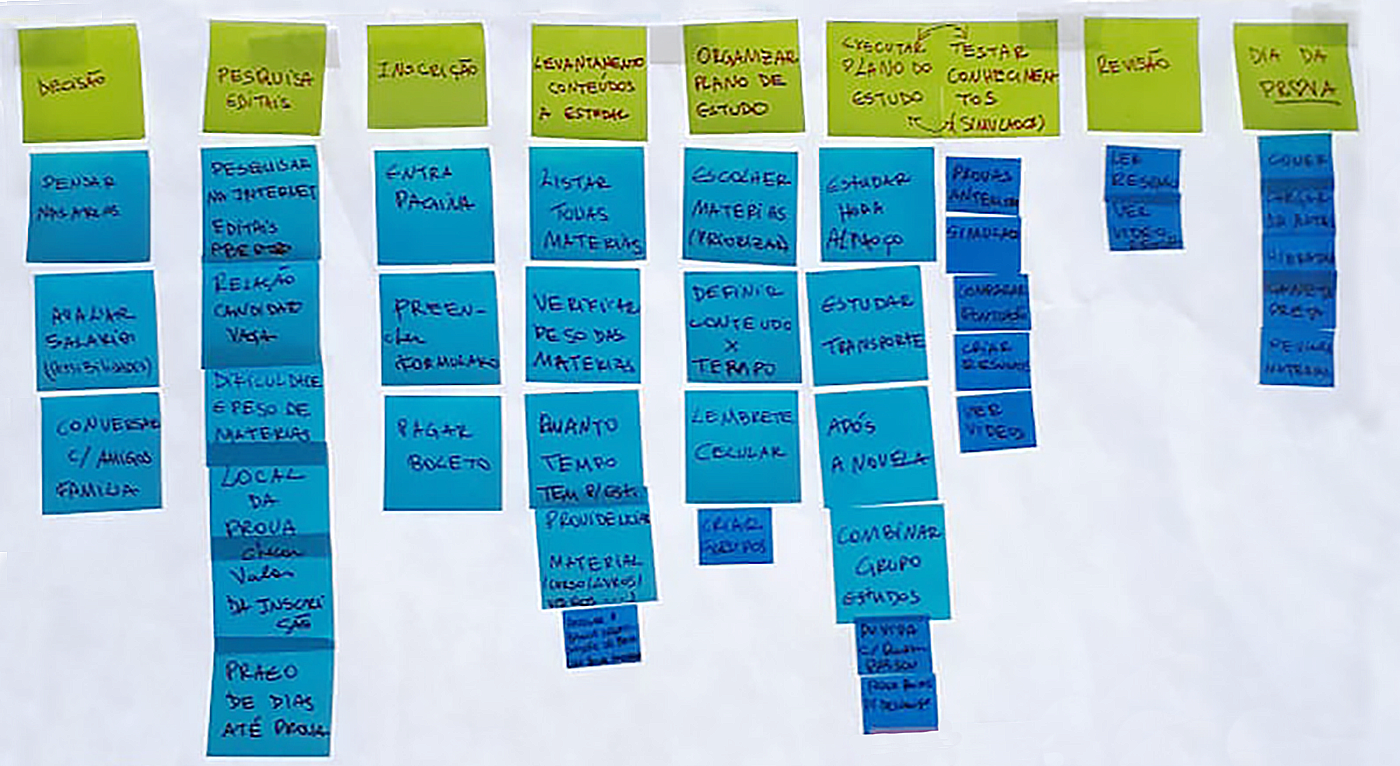 DECISÃO
PENSAR
NAS AREAS
AVALIAR
SALARIO
CONVERSAR
C/ AMIGOS
FAMILIA
PESQUISA
EDITAIS
PESQUISAR
NA INTERNET
EDITAIS
ABERTO
RELAÇÃO
CANDIDATO
VAGA
DIFICULDADE
E PESO DE
MATERIAS
LOCAL
DA
PROVA
checar
Valor
DA INSCRI
ÇÃO
PRAZO
DE DIAS
ATÉ PROVA
INSCRIÇÃO
ENTRA
PAGINA
PREEN-
cher
FORMULARIO
PAGAR
BOLETO
LEVANTAMENTO
CONTEÚDOS
À ESTUDAR
LISTAR
TODAS
MATERIAS
VERIFICAR
PESO DAS
MATERIAS
QUANTO
TEMPO
TEM P/ EST.
PROVIDENCIAR
MATERIAL
(CURSO/LIVROS/
ORGANIZAR
PLANO DE
ESTUDO
ESCOLHER
MATERIAS
(PRIORIZAR)
DEFINIR
CONTEUDO
X
TEMPO
LEMBRETE
CELULAR
CRIAR
GRUPOS
EXECUTAR
PLANO DO
ESTUDO
TESTAR
CONHECIMEN
TOS
(SIMULADOS)
ESTUDAR
HORA
ALMOÇO
ESTUDAR
TRANSPORTE
APÓS
A NOVELA
COMBINAR
GRUPO
ESTUDOS
DUVIDA
C/ QUEM
PASSOU
PROVAS
ANTERIOR
SIMULADO
COMPARAR
PONTUAÇÃO
CRIAR
RESUMOS
VER
VIDEOS
REVISÃO
LER
RESUMO
VER
VIDEO
DIA DA
PROVA
COMER
CANETA
PRETA